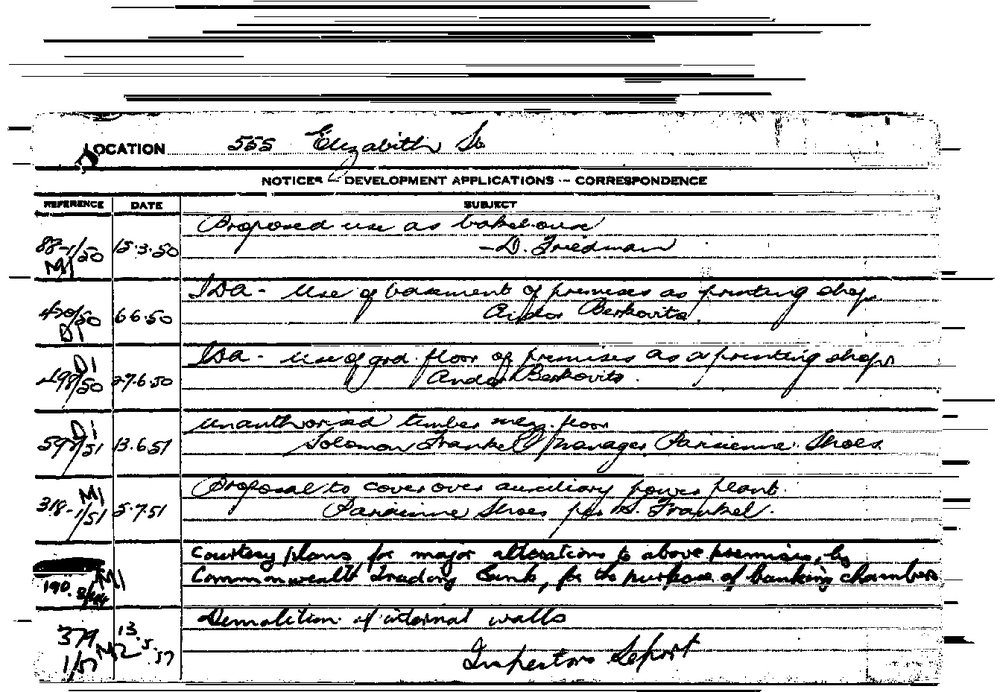 LOCATION 555 Elizabeth St
NOTICES - DEVELOPMENT APPLICATIONS - CORRESPONDENCE
REFERENCE DATE SUBJECT
Proposed use as bakehouse
88-1/50 15.3.50 - D. Friedman
M1
IDA - Use of basement of premises as printing shop
420/50 6.6.50 Andor Berkovits.
D1
IDA - Use of grd. floor of premises as a printing shop
D1
498/50 27.6.50 Andor Berkovits.
unauthorised timber mezz. floor
D1
597/51 13.6.51 Solomon Frankel Manager Parisienne Shoes
Proposal to cover over auxiliary power plant.
M1
318-1/51 5.7.51 Parisienne Shoes per S. Frankel.
Courtesy plans for major alterations to above premises, by
M1
190 Commonwealth Trading Bank, for the purpose of banking chambers
Demolition of internal walls
379 1/57 M2 13.5.57
Inspectors Report